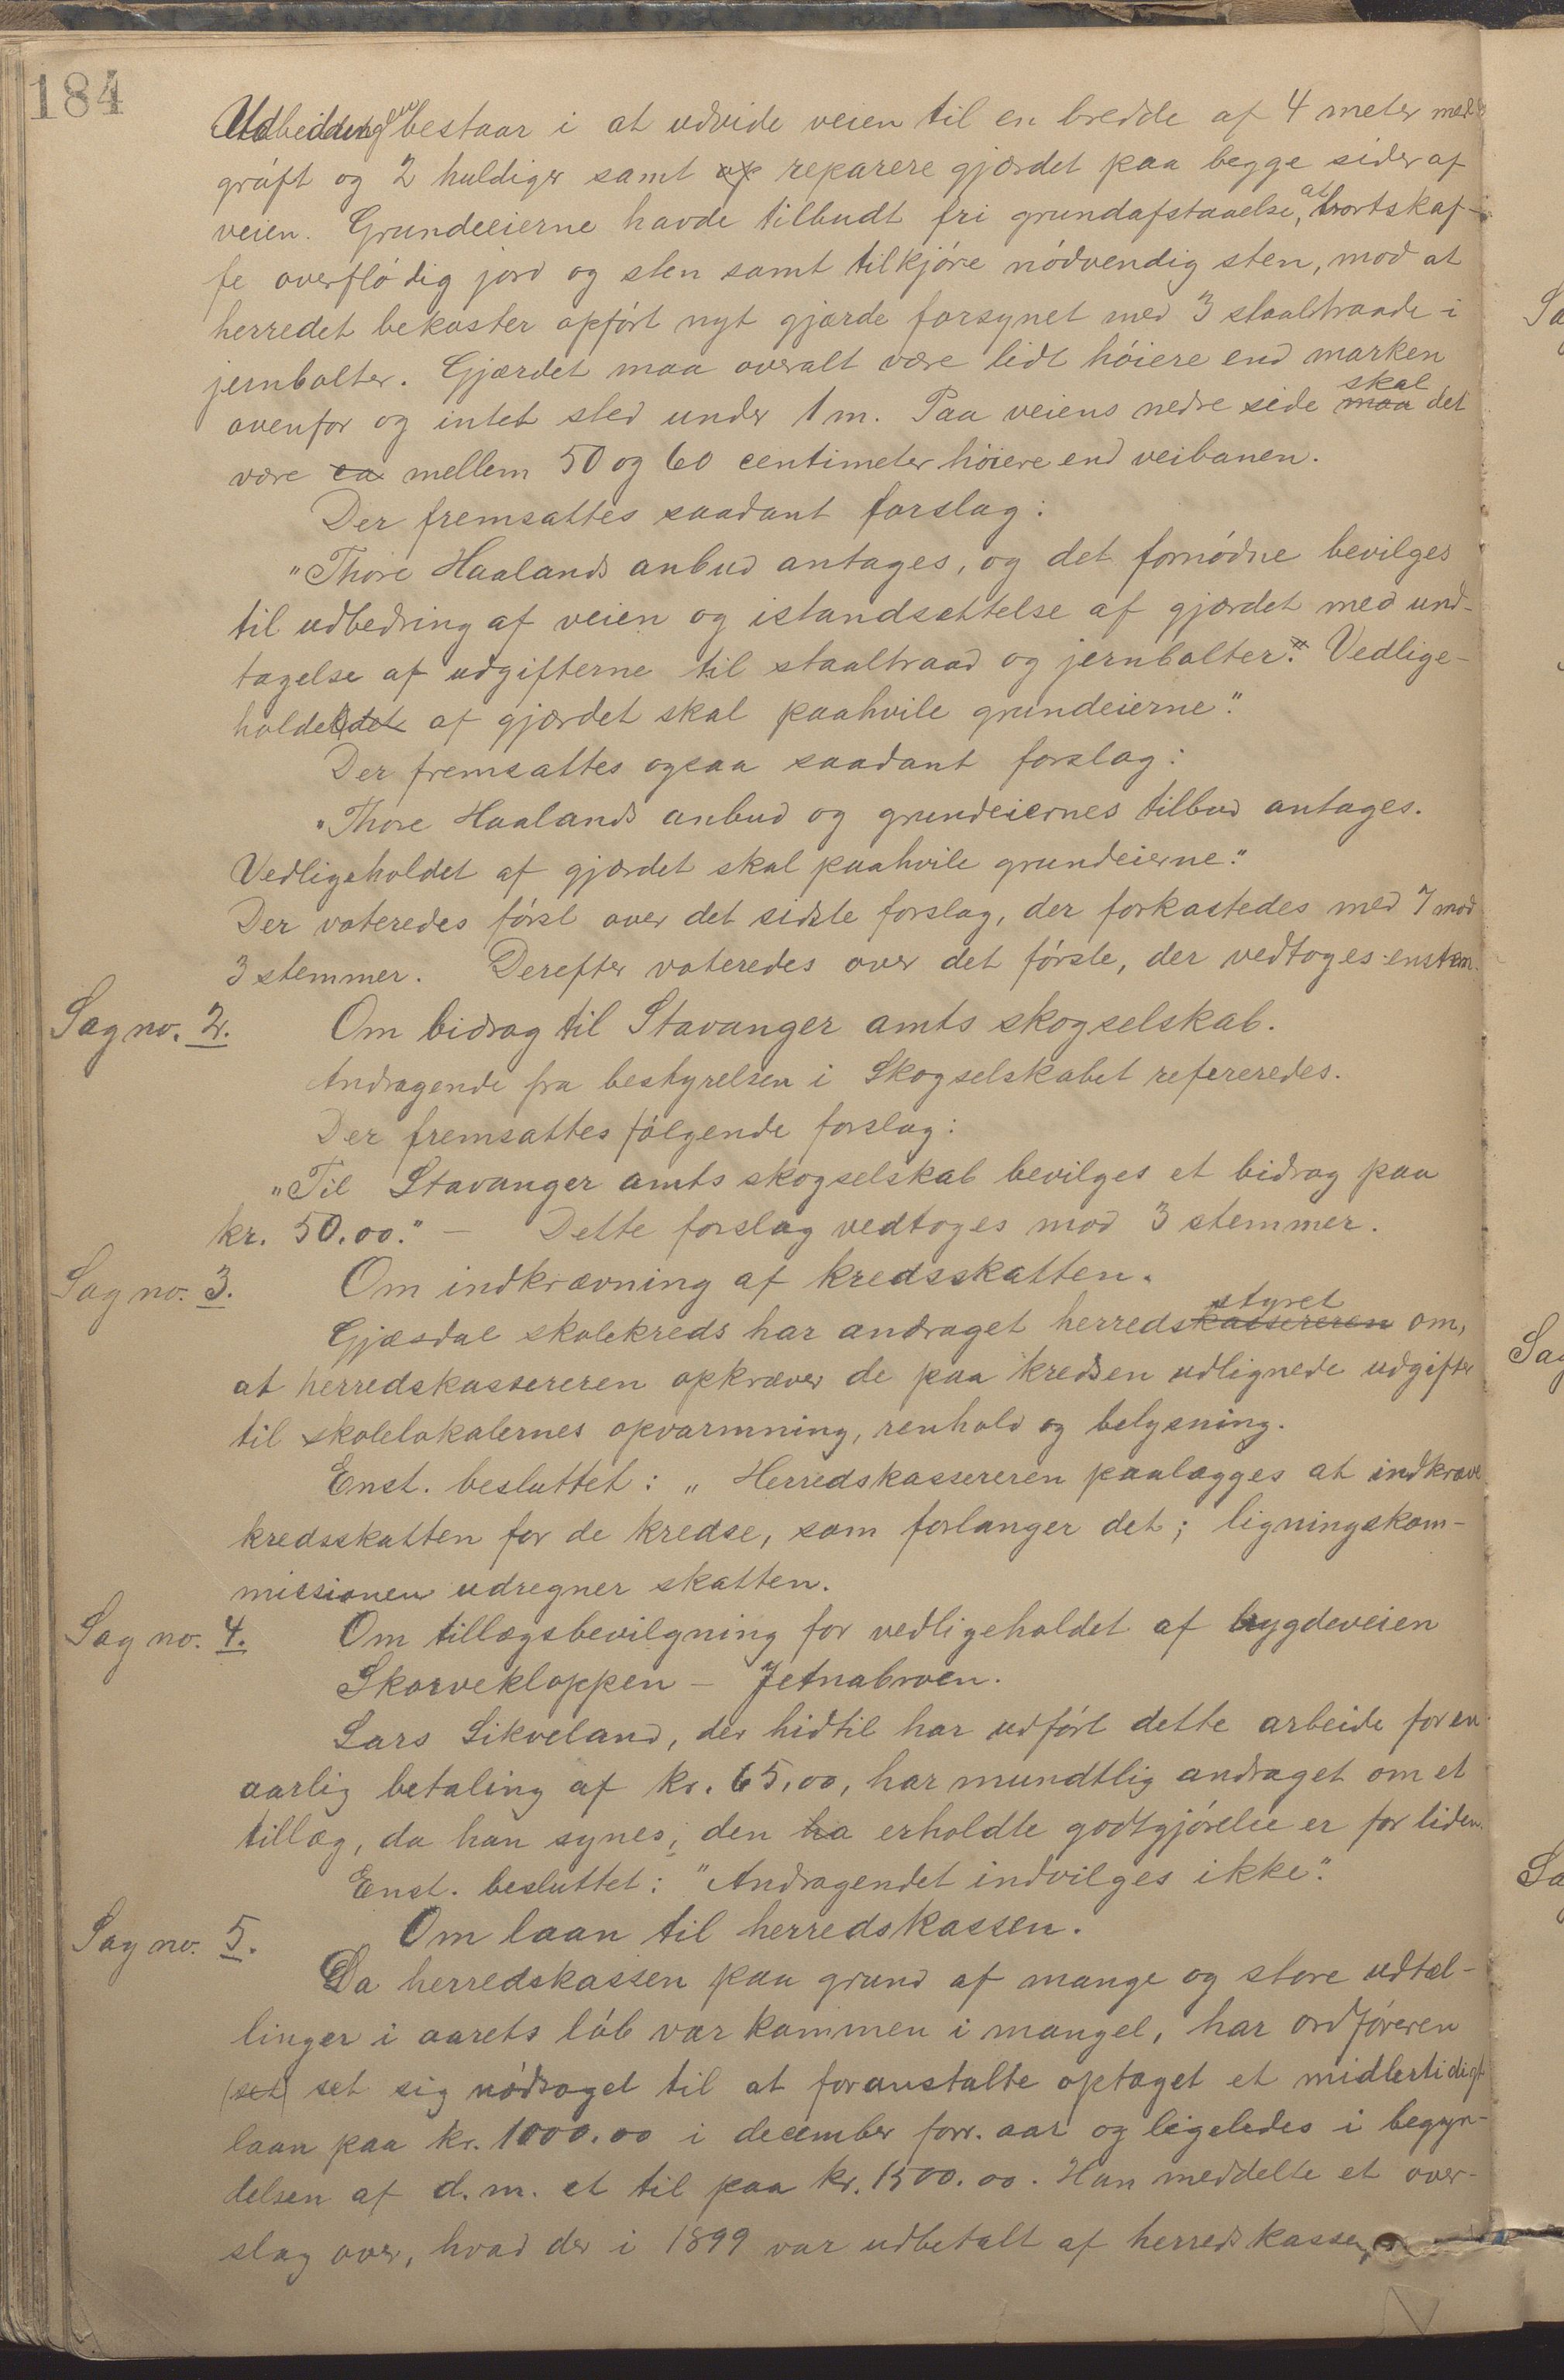 184
Udbedringen bestaar i at udvide veien til en bredde af 4 meter med
grøft og 2 huldiger samt op reparere gjærdet paa begge sider af
veien. Grundeeierne havde tilbudt fri grundafstaaelse, at bortskaf-
fe overflødig jord og sten samt tilkjøre nødvendig sten, mod at
herredet bekoster opført nyt gjærde forsynet med 3 staaltraade i
jernbolter. Gjærdet maa overalt være lidt høiere end marken
ovenfor og intet sted under 1 m. Paa veiens nedre side maa skal det
være ca mellem 50 og 60 centimeter høiere end veibanen.
Der fremsattes saadant forslag:
"Thore Haalands anbud antages, og det fornødne bevilges
til udbedring af veien og istandsættelse af gjærdet med und-
tagelse af udgifterne til staaltraad og jernbolter." Vedlige-
holdet af gjærdet skal paahvile grundeierne."
Der fremsattes ogsaa saadant forslag:
"Thore Haalands anbud og grundeiernes tilbud antages.
Vedligeholdet af gjærdet skal paahvile grundeierne."
Der voteredes først over det sidste forslag, der forkastedes med 7 mod
3 stemmer. Derefter voteredes over det første, der vedtoges enstem.
Sag no. 2. Om bidrag til Stavanger amts skogselskab.
Andragende fra bestyrelsen i Skogselskabet refereredes.
Der fremsattes følgende forslag:
"Til Stavanger amts skogselskab bevilges et bidrag paa
kr. 50.00." – Dette forslag vedtoges mod 3 stemmer.
Sag no. 3. Om indkrævning af kredsskatten.
Gjæsdal skolekreds har andraget herredskassereren styret om,
at herredskassereren opkræver de paa kredsen udlignede udgifter
til skolelokalernes opvarmning, renhold og belysning.
Enst. besluttet: "Herredskassereren paalægges at indkræve
kredsskatten for de kredse, som forlanger det; ligningskom-
missionen udregner skatten.
Sag no. 4. Om tillægsbevilgning for vedligeholdet af bygdeveien
Skorvekloppen – Jetnabroen.
Lars Sikveland, der hidtil har udført dette arbeide for en
aarlig betaling af kr. 65,00, har mundtlig andraget om et
tillæg, da han synes, den ha erholdte godtgjørelse er for liden.
Enst. besluttet: "Andragendet indvilges ikke."
Sag no. 5. Om laan til herredskassen.
Da herredskassen paa grund af mange og store udtæl-
linger i aarets løb var kommen i mangel, har ordføreren
(set) set sig nødsaget til at foranstalte optaget et midlertidigt
laan paa kr. 1000.00 i december forr. aar og ligeledes i begyn-
delsen af d. m. et til paa kr. 1500.00. Han meddelte et over-
slag over, hvad der i 1899 var udbetalt af herredskassen